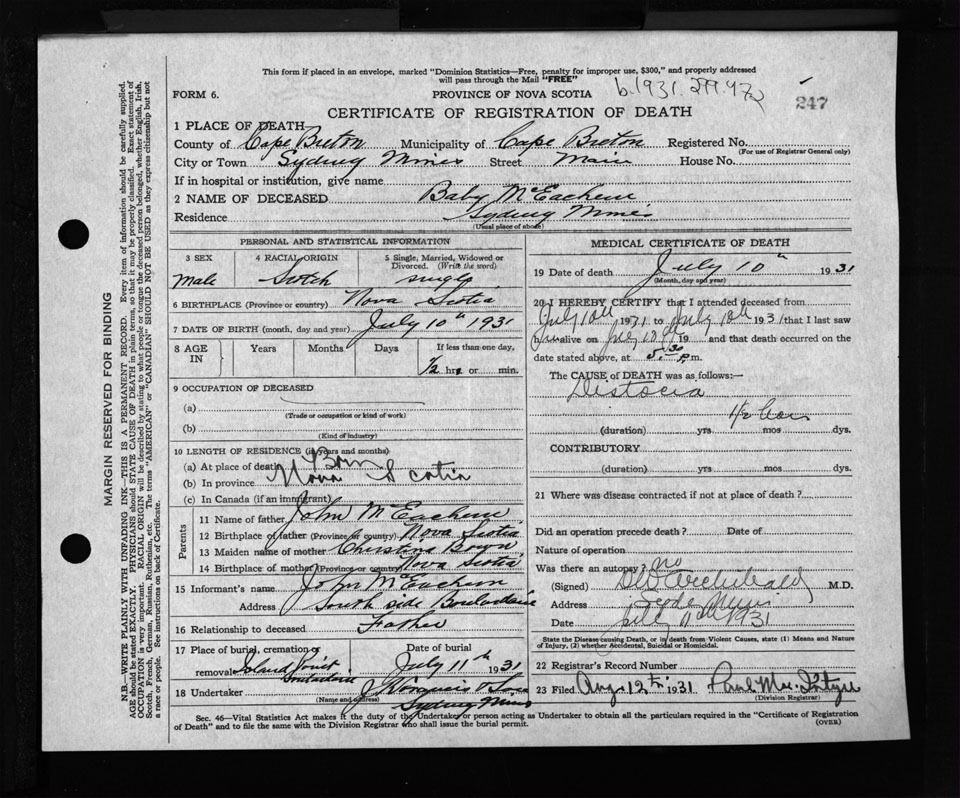 This form if placed in an envelope, marked "Dominion Statistics—Free, penalty for improper use, $300," and properly addressed
will pass through the Mail "FREE"
FORM 6. PROVINCE OF NOVA SCOTIA
247
CERTIFICATE OF REGISTRATION OF DEATH
1 PLACE OF DEATH—
County of Cape Breton Municipality of Cape Breton Registered No.
(For use of Registrar General only)
City or Town Sydney Mines Street Main House No.
If in hospital or institution, give name
2 NAME OF DECEASED Baby McEachern
Residence Sydney Mines
(Usual place of abode)
PERSONAL AND STATISTICAL INFORMATION
3 SEX 4 RACIAL ORIGIN 5 Single, Married, Widowed or
Divorced. (Write the word)
Male Scotch single
6 BIRTHPLACE (Province or country) Nova Scotia
7 DATE OF BIRTH (month, day and year) July 10th 1931
8 AGE IN Years Months Days If less than one day.
1/2 hrs or min.
9 OCCUPATION OF DECEASED
(a)
(Trade or occupation or kind of work)
(b)
(Kind of industry)
10 LENGTH OF RESIDENCE (in years and months)
(a) At place of death Born
(b) In province Nova Scotia
(c) In Canada (if an immigrant)
Parents
11 Name of father John McEachern
12 Birthplace of father (Province or country) Nova Scotia
13 Maiden name of mother Christina
14 Birthplace of mother (Province or country) Nova Scotia
15 Informant's name John McEachern
Address South side Boulardarie
16 Relationship to deceased Father
17 Place of burial, cremation or Date of burial
removal Island Point Boulardarie July 11th 1931
18 Undertaker
(Name and address)
Sydney Mines
MEDICAL CERTIFICATE OF DEATH
19 Date of death July 10th 1931
(Month, day and year)
20 I HEREBY CERTIFY that I attended deceased from
July 10th 1931 to July 10th 1931 that I last saw
him alive on July 10th 19 and that death occurred on the
date stated above, at 5.30 p.m.
The CAUSE of DEATH was as follows:—
Distocia
1/2 hour
(duration) yrs mos dys.
CONTRIBUTORY
(duration) yrs mos dys.
21 Where was disease contracted if not at place of death?
Did an operation precede death? Date of
Nature of operation
Was there an autopsy? no
(Signed) Archibald M.D.
Address Sydney Mines
Date July 11th 1931
State the Disease causing Death, or in death from Violent Causes, state (1) Means and Nature
of Injury, (2) whether Accidental, Suicidal or Homicidal.
22 Registrar's Record Number
23 Filed Aug 12th 1931
(Division Registrar)
Sec. 46—Vital Statistics Act makes it the duty of the Undertaker or person acting as Undertaker to obtain all the particulars required in the "Certificate of Registration
of Death" and to file the same with the Division Registrar who shall issue the burial permit. (OVER)
MARGIN RESERVED FOR BINDING
N.B.—WRITE PLAINLY WITH UNFADING INK—THIS IS A PERMANENT RECORD. Every item of information should be carefully supplied.
AGE should be stated EXACTLY. PHYSICIANS should STATE CAUSE OF DEATH in plain terms, so that it may be properly classified. Exact statement of
OCCUPATION is very important. RACIAL ORIGIN will be described by stating to what people or tongue the deceased person belonged, whether English, Irish,
Scotch, French, German, Russian, Ruthenian, etc. The terms "AMERICAN" or "CANADIAN" SHOULD NOT BE USED as they express citizenship but not
a race or people. See instructions on back of Certificate.